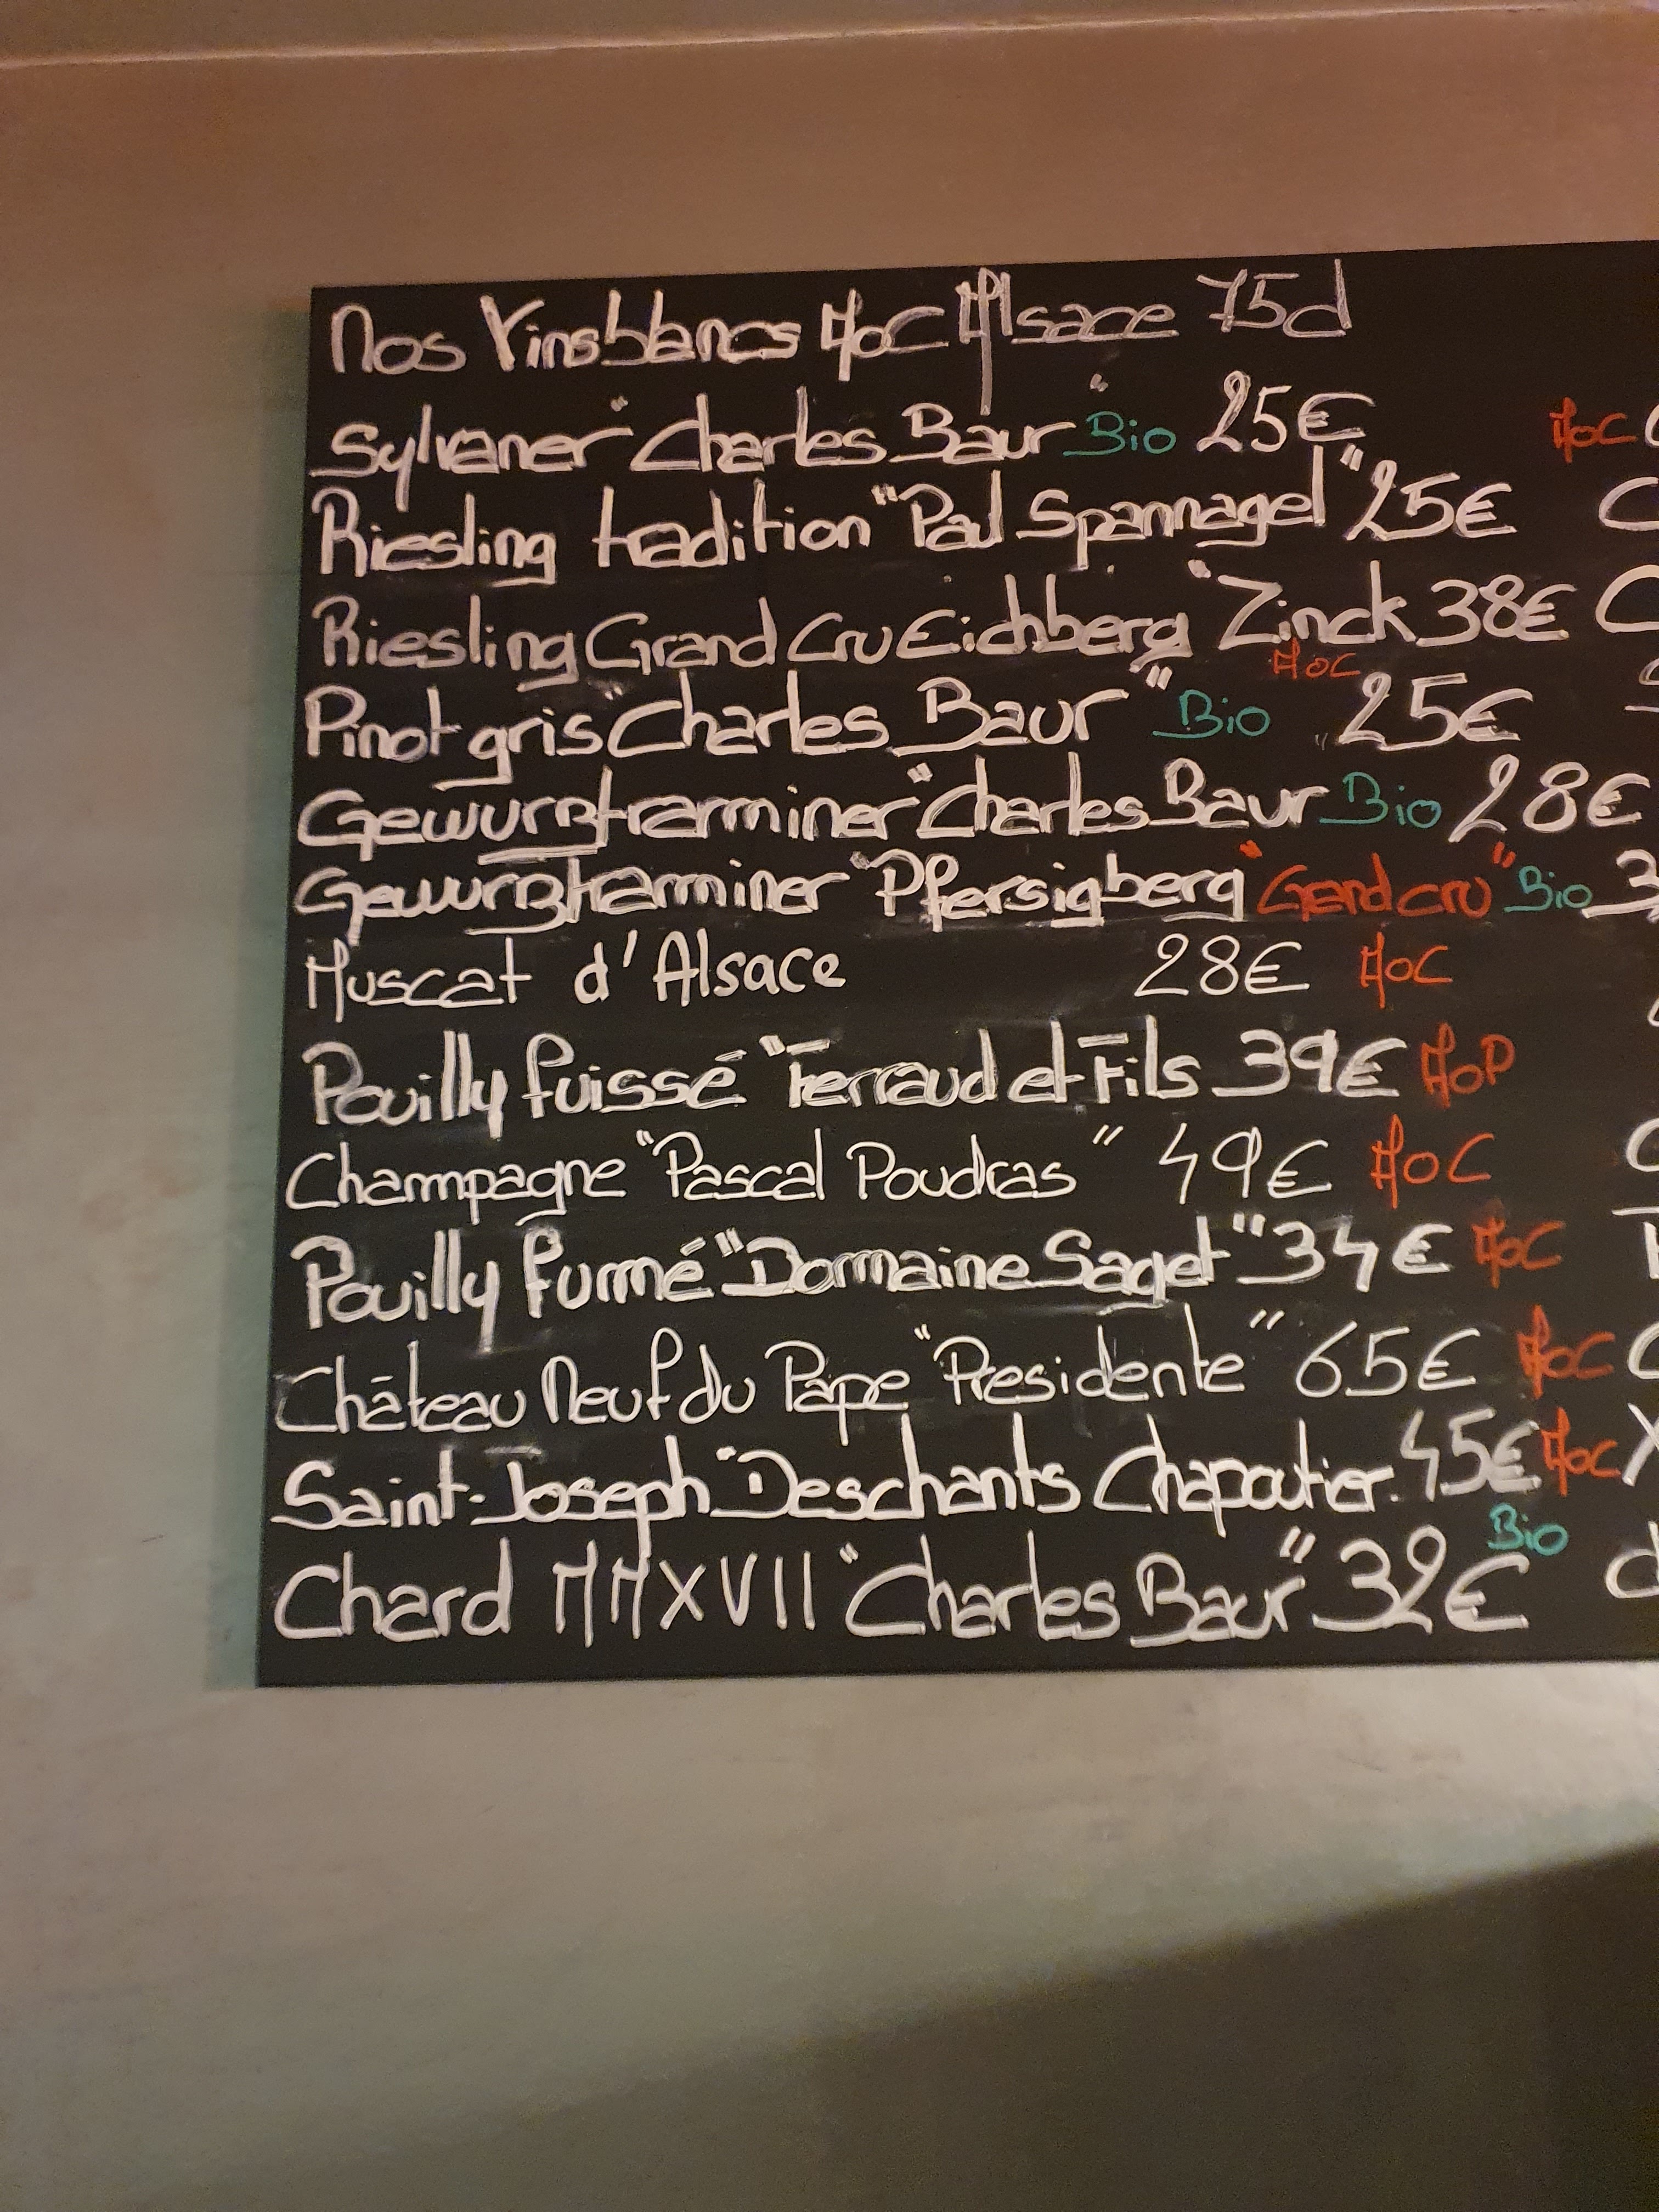 Nos Vins blancs AOC Alsace 75cl
Sylvaner "Charles Baur" Bio 25€
Riesling tradition "Paul Spannagel" 25€
Riesling Grand Cru Eichberg "Zinck 38€
AOC
Pinot gris "Charles Baur" Bio 25€
Gewurztraminer "Charles Baur Bio 28€
Gewurztraminer "Pfersigberg "Grand cru" Bio 3
Muscat d'Alsace 28€ AOC
Pouilly fuissé "Ferraud et Fils 39€ AOP
Champagne "Pascal Poudras" 49€ AOC
Pouilly fumé "Domaine Saget" 34€ AOC
Château Neuf du Pape "Presidente" 65€ AOC
Saint-Joseph "Deschants Chapoutier. 45€ AOC
Bio
Chard MMXVII "Charles Baur" 32€
AOC